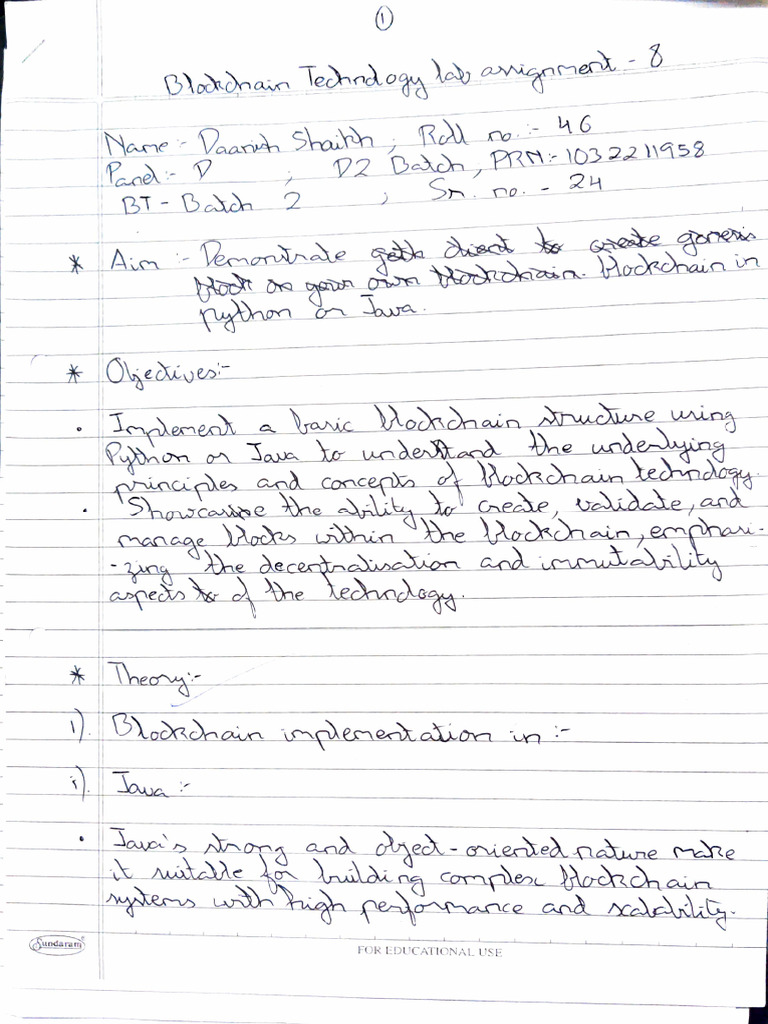 1
Blockchain Technology lab assignment - 8
Name :- Daanish Shaikh ; Roll no. :- 46
Panel :- D ; D2 Batch, PRN :- 1032211958
BT - Batch 2 ; Sr. no. - 24
* Aim :- Demonstrate geth client to create genesis
block on your own blockchain. blockchain in
python or Java.
* Objectives:-
• Implement a basic blockchain structure using
Python or Java to understand the underlying
principles and concepts of blockchain technology.
• Showcase the ability to create, validate, and
manage blocks within the blockchain, emphasi-
-zing the decentralisation and immutability
aspects to of the technology.
* Theory:-
1). Blockchain implementation in :-
i). Java :-
• Java's strong and object-oriented nature make
it suitable for building complex blockchain
systems with high performance and scalability.
Sundaram
FOR EDUCATIONAL USE